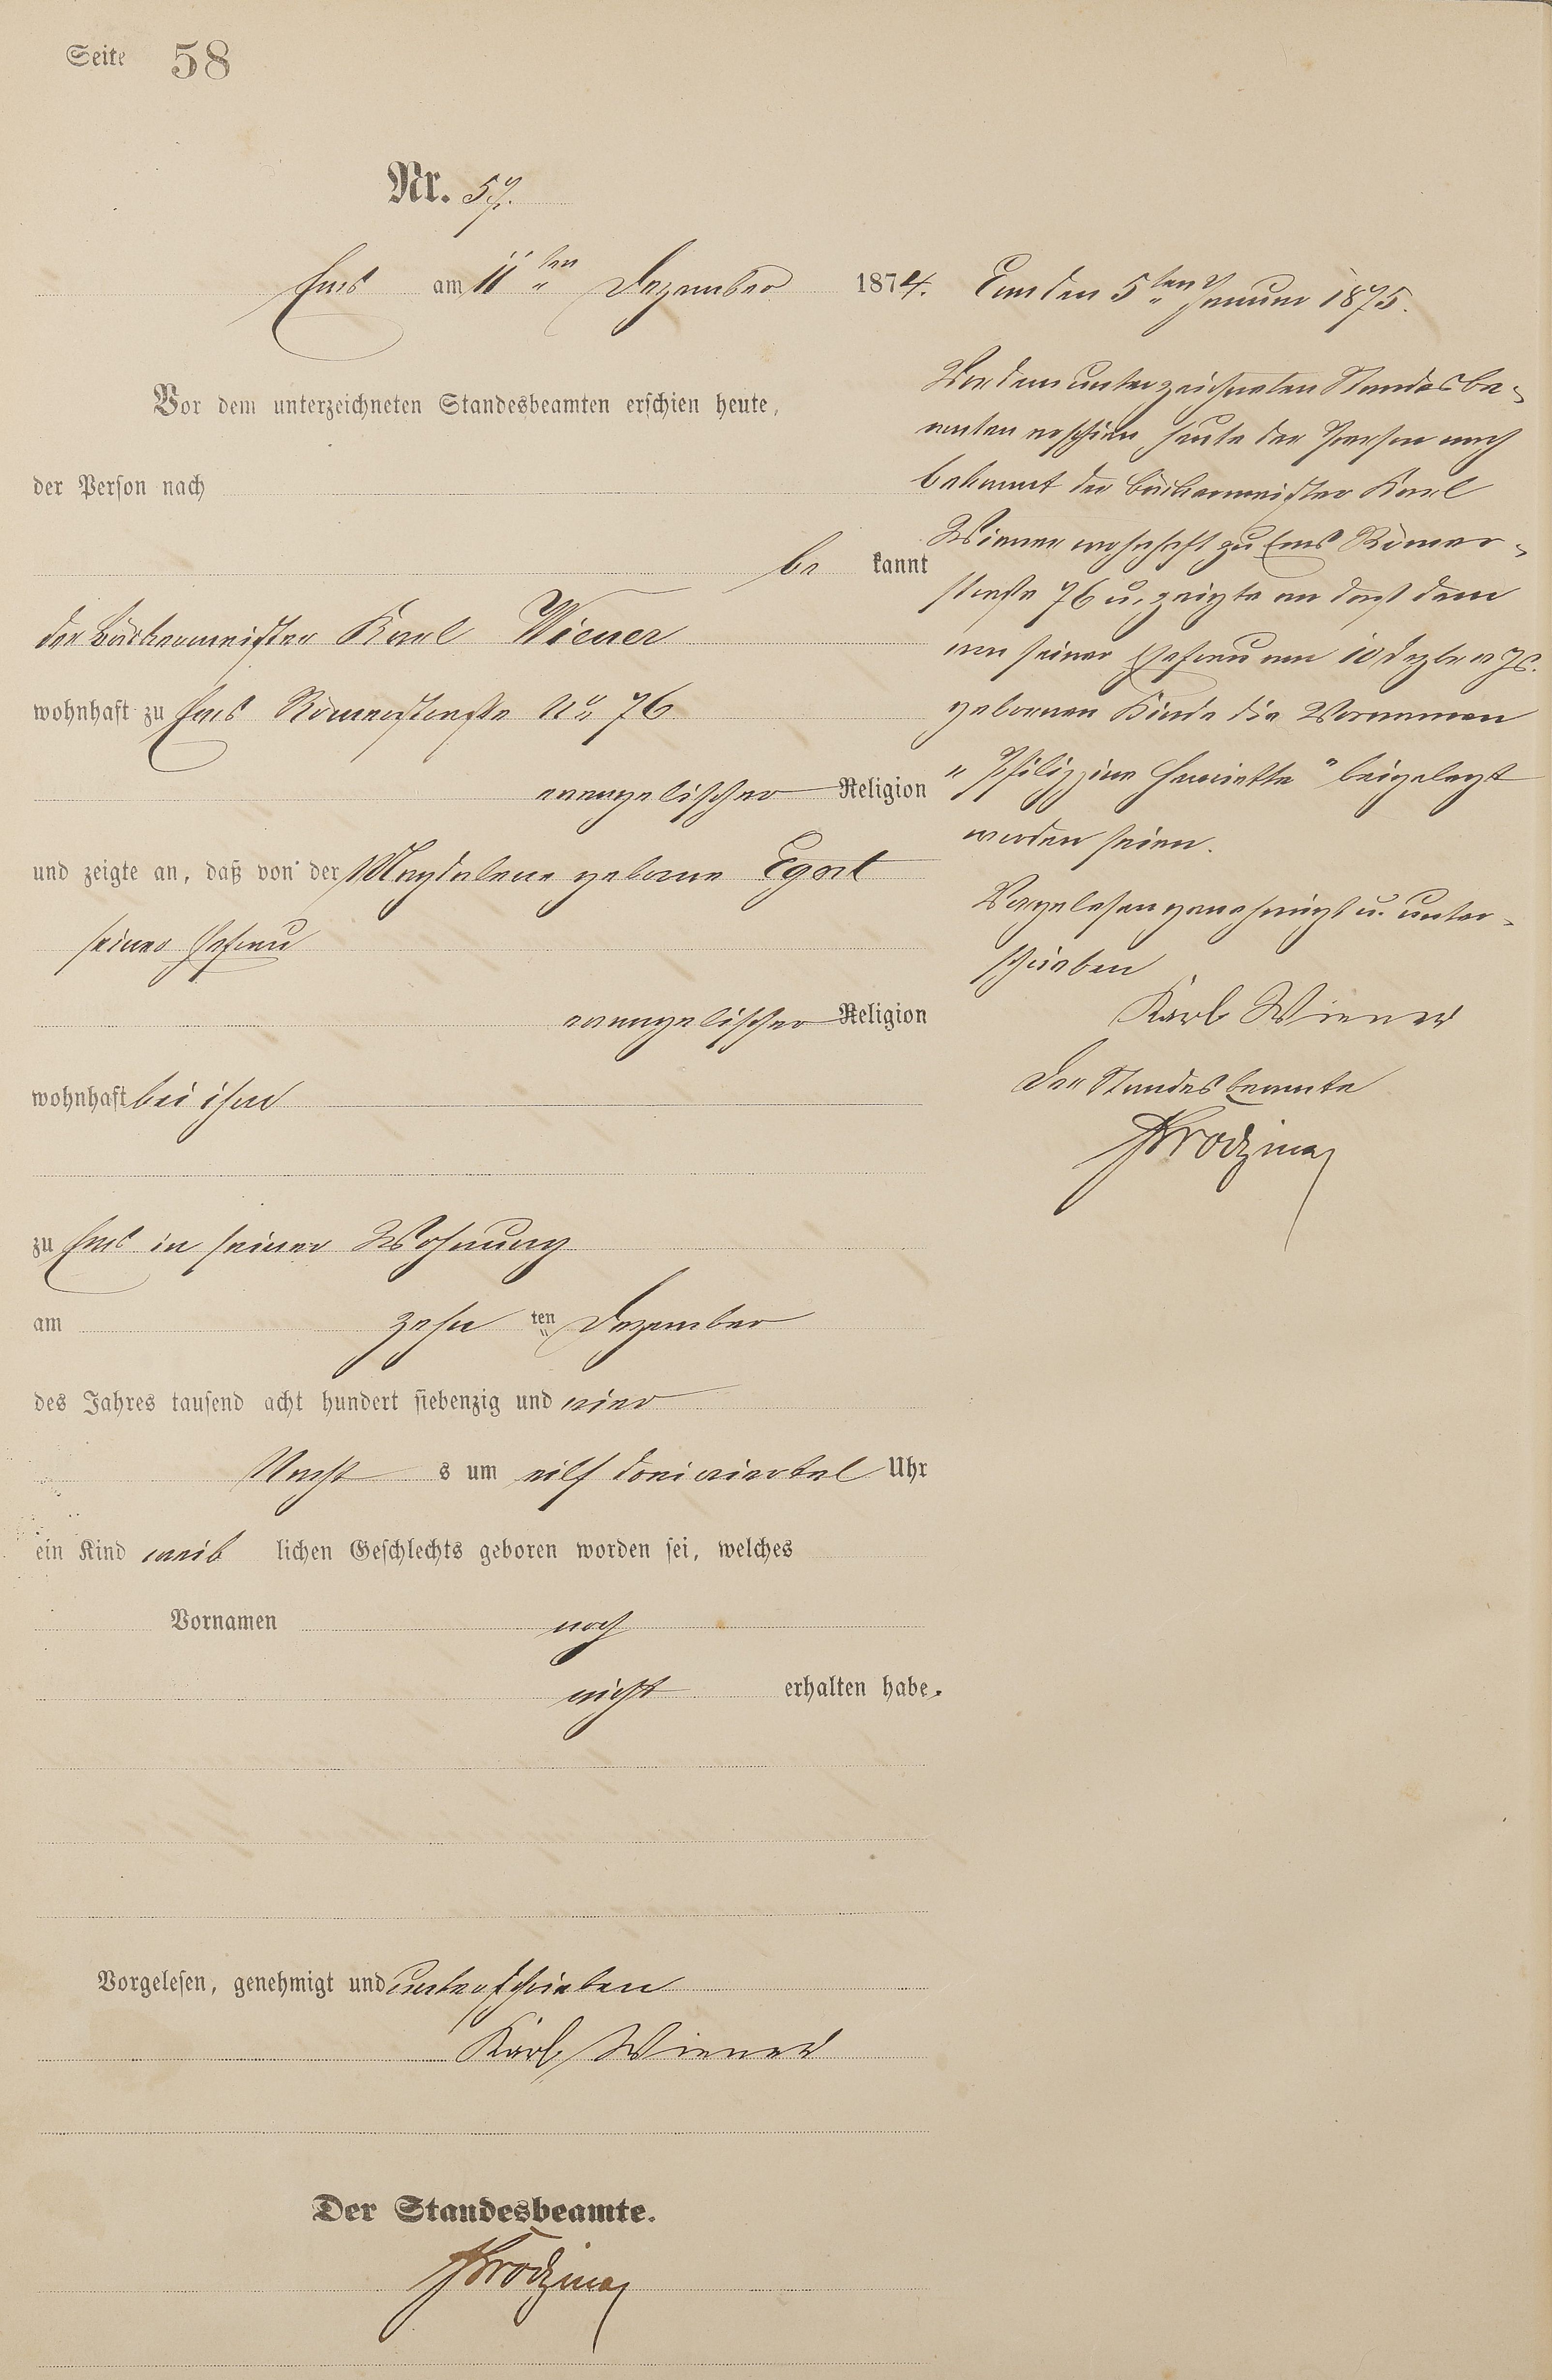 Seite 58
Nr. 57.
Ems am 11ten Dezember 1874.
Vor dem unterzeichneten Standesbeamten erschien heute,
der Person nach
be kannt
der Bäckermeister Karl Wiener
wohnhaft zu Ems Römerstraße No 76
evangelischer Religion
und zeigte an, daß von der Magdalene geborne Egert
seiner Ehefrau
evangelischer Religion
wohnhaft bei ihm
zu Ems in seiner Wohnung
am zehn ten Dezember
des Jahres tausend acht hundert siebenzig und vier
Nacht s um eilf dreiviertel Uhr
ein Kind weib lichen Geschlechts geboren worden sei, welches
Vornamen noch
nicht erhalten habe.
Vorgelesen, genehmigt und unterschrieben
Karl Wiener
Der Standesbeamte.
Ems den 5ten Januar 1875.
Vor dem unterzeichneten Standesbe-
amten erschien heute der Person nach
bekannt der Bäckermeister Karl
Wiener wohnhaft zu Ems Römer-
straße 76 u. zeigte an daß dem
von seiner Ehefrau am 10 Dezbr v Js.
gebornen Kinde die Vornamen
"Philippine Henriette" beigelegt
worden seien.
Vorgelesen genehmigt u. unter-
schrieben
Karl Wiener
Der Standesbeamte